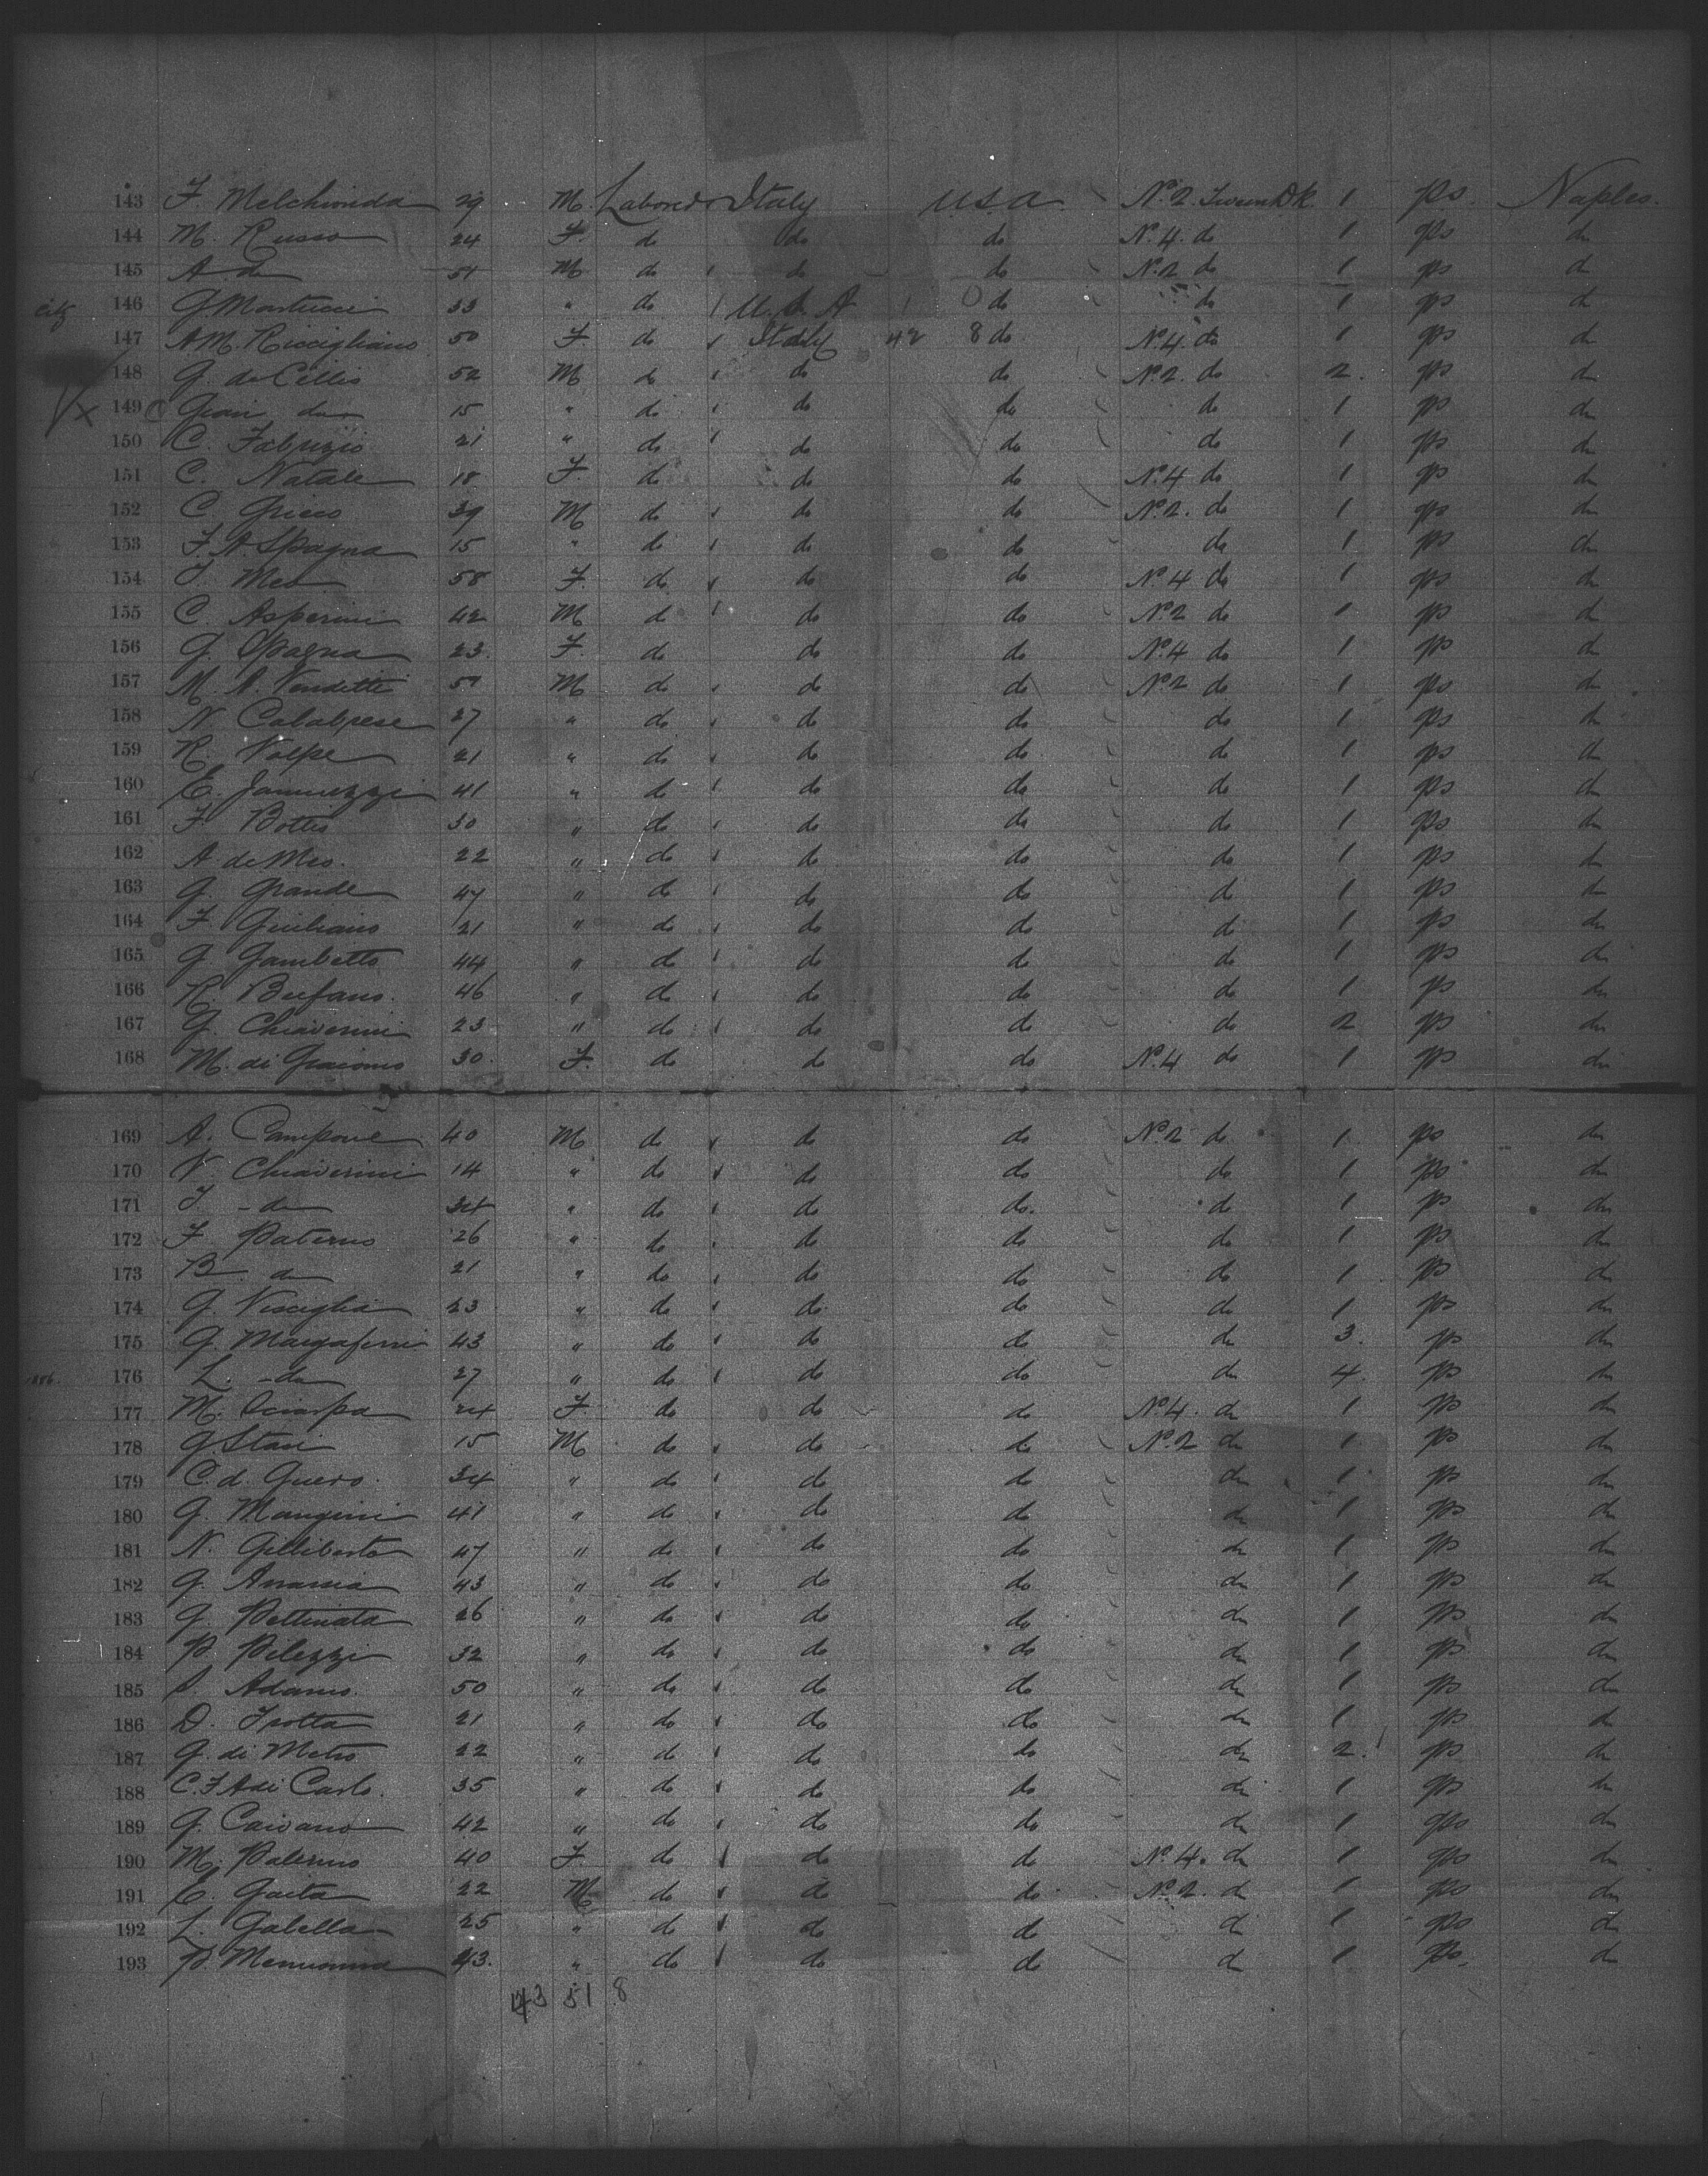 143 F. Melchionda 29 M. Laborer Italy U.S.A. No. 2. Tween Dk 1 ps. Naples.
144 M. Russo 24 F. do do do No. 4. do 1 ps do
145 A do 51 M do do do No. 2 do 1 ps do
citz 146 G Montucci 33 " do U.S.A do do 1 ps do
147 A.M. Riccigliano 50 F. do Italy 42 8 do No. 4. do 1 ps do
148 G. de Cillis 52 M do do do No. 2. do 2. ps do
149 Gian do 15 " do do do do 1 ps do
150 C. Fabrizio 21 " do do do do 1 ps do
151 C. Natale 18 F. do do do No. 4 do 1 ps do
152 C. Grieco 39 M do do do No. 2. do 1 ps do
153 F. A. Spagna 15 " do do do do 1 ps do
154 Meo 58 F. do do do No. 4 do 1 ps do
155 C. Asperini 42 M do do do No. 2 do 1 ps do
156 G. Spagna 23. F. do do do No. 4 do 1 ps do
157 M. A. Venditti 51 M do do do No. 2 do 1 ps do
158 N. Calabrese 27 " do do do do 1 ps do
159 R. Volpe 21 " do do do do 1 ps do
160 E. Jannuzzi 41 " do do do do 1 ps do
161 F. Bottis 30 " do do do do 1 ps do
162 A de Meo. 22 " do do do do 1 ps do
163 G. Grande 47 " do do do do 1 ps do
164 F. Giuliano 21 " do do do do 1 ps do
165 G. Gambetta 44 " do do do do 1 ps do
166 R. Bufano. 46 " do do do do 1 ps do
167 G. Chiaverini 23 " do do do do 2 ps do
168 M. di Giacomo 30. F. do do do No. 4 do 1 ps do
169 A. Campone 40 M do do do No. 2 do 1 ps do
170 V. Chiaverini 14 " do do do do 1 ps do
171 - do 34 " do do do. do 1 ps do
172 F. Paterno 26 " do do do do 1 ps do
173 B. do 21 " do do do do 1 ps do
174 G. Visciglia 23 " do do do do 1 ps do
175 G. Margaferri 43 " do do do do 3. ps do
1886. 176 L. - do 27 " do do do do 4. ps do
177 M. Sciarpa 24 F. do do do No. 4. do 1 ps do
178 G. Stasi 15 M do do do No. 2 do 1 ps do
179 C. d. Guero. 34 " do do do do 1 ps do
180 G. Mangini 41 " do do do do 1 ps do
181 N. Gilliberto 47 " do do do do 1 ps do
182 G. Anania 43 " do do do do 1 ps do
183 G. Pettinata 26 " do do do do 1 ps do
184 P. Pilezzi 32 " do do do do 1 ps do
185 Adamo. 50 " do do do do 1 ps do
186 D. Trotta 21 " do do do do 1 ps do
187 G. di Metro 22 " do do do do 2. ps do
188 C.F.A di Carlo. 35 " do do do do 1 ps do
189 G. Caivano 42 " do do do do 1 ps do
190 M. Palermo 40 F. do do do No. 4. do 1 ps do
191 E. Gaeta 22 M do do do No. 2. do 1 ps do
192 L. Gabella 25 " do do do do 1 ps do
193 P. 43. " do do do do 1 ps. do
43 51 8